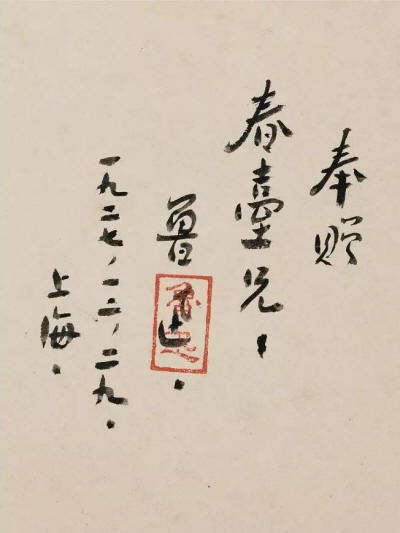 奉贈
春臺兄。
一九二七、一二、二九。
上海。